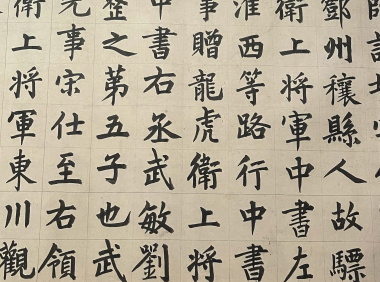 鄧州穰縣人故驃
衛上將軍中書左
淮西等路行中書
事贈龍虎衛上將
中書右丞武敏劉
整之第五子也武
先事宋仕至右領
衛上將軍東川觀